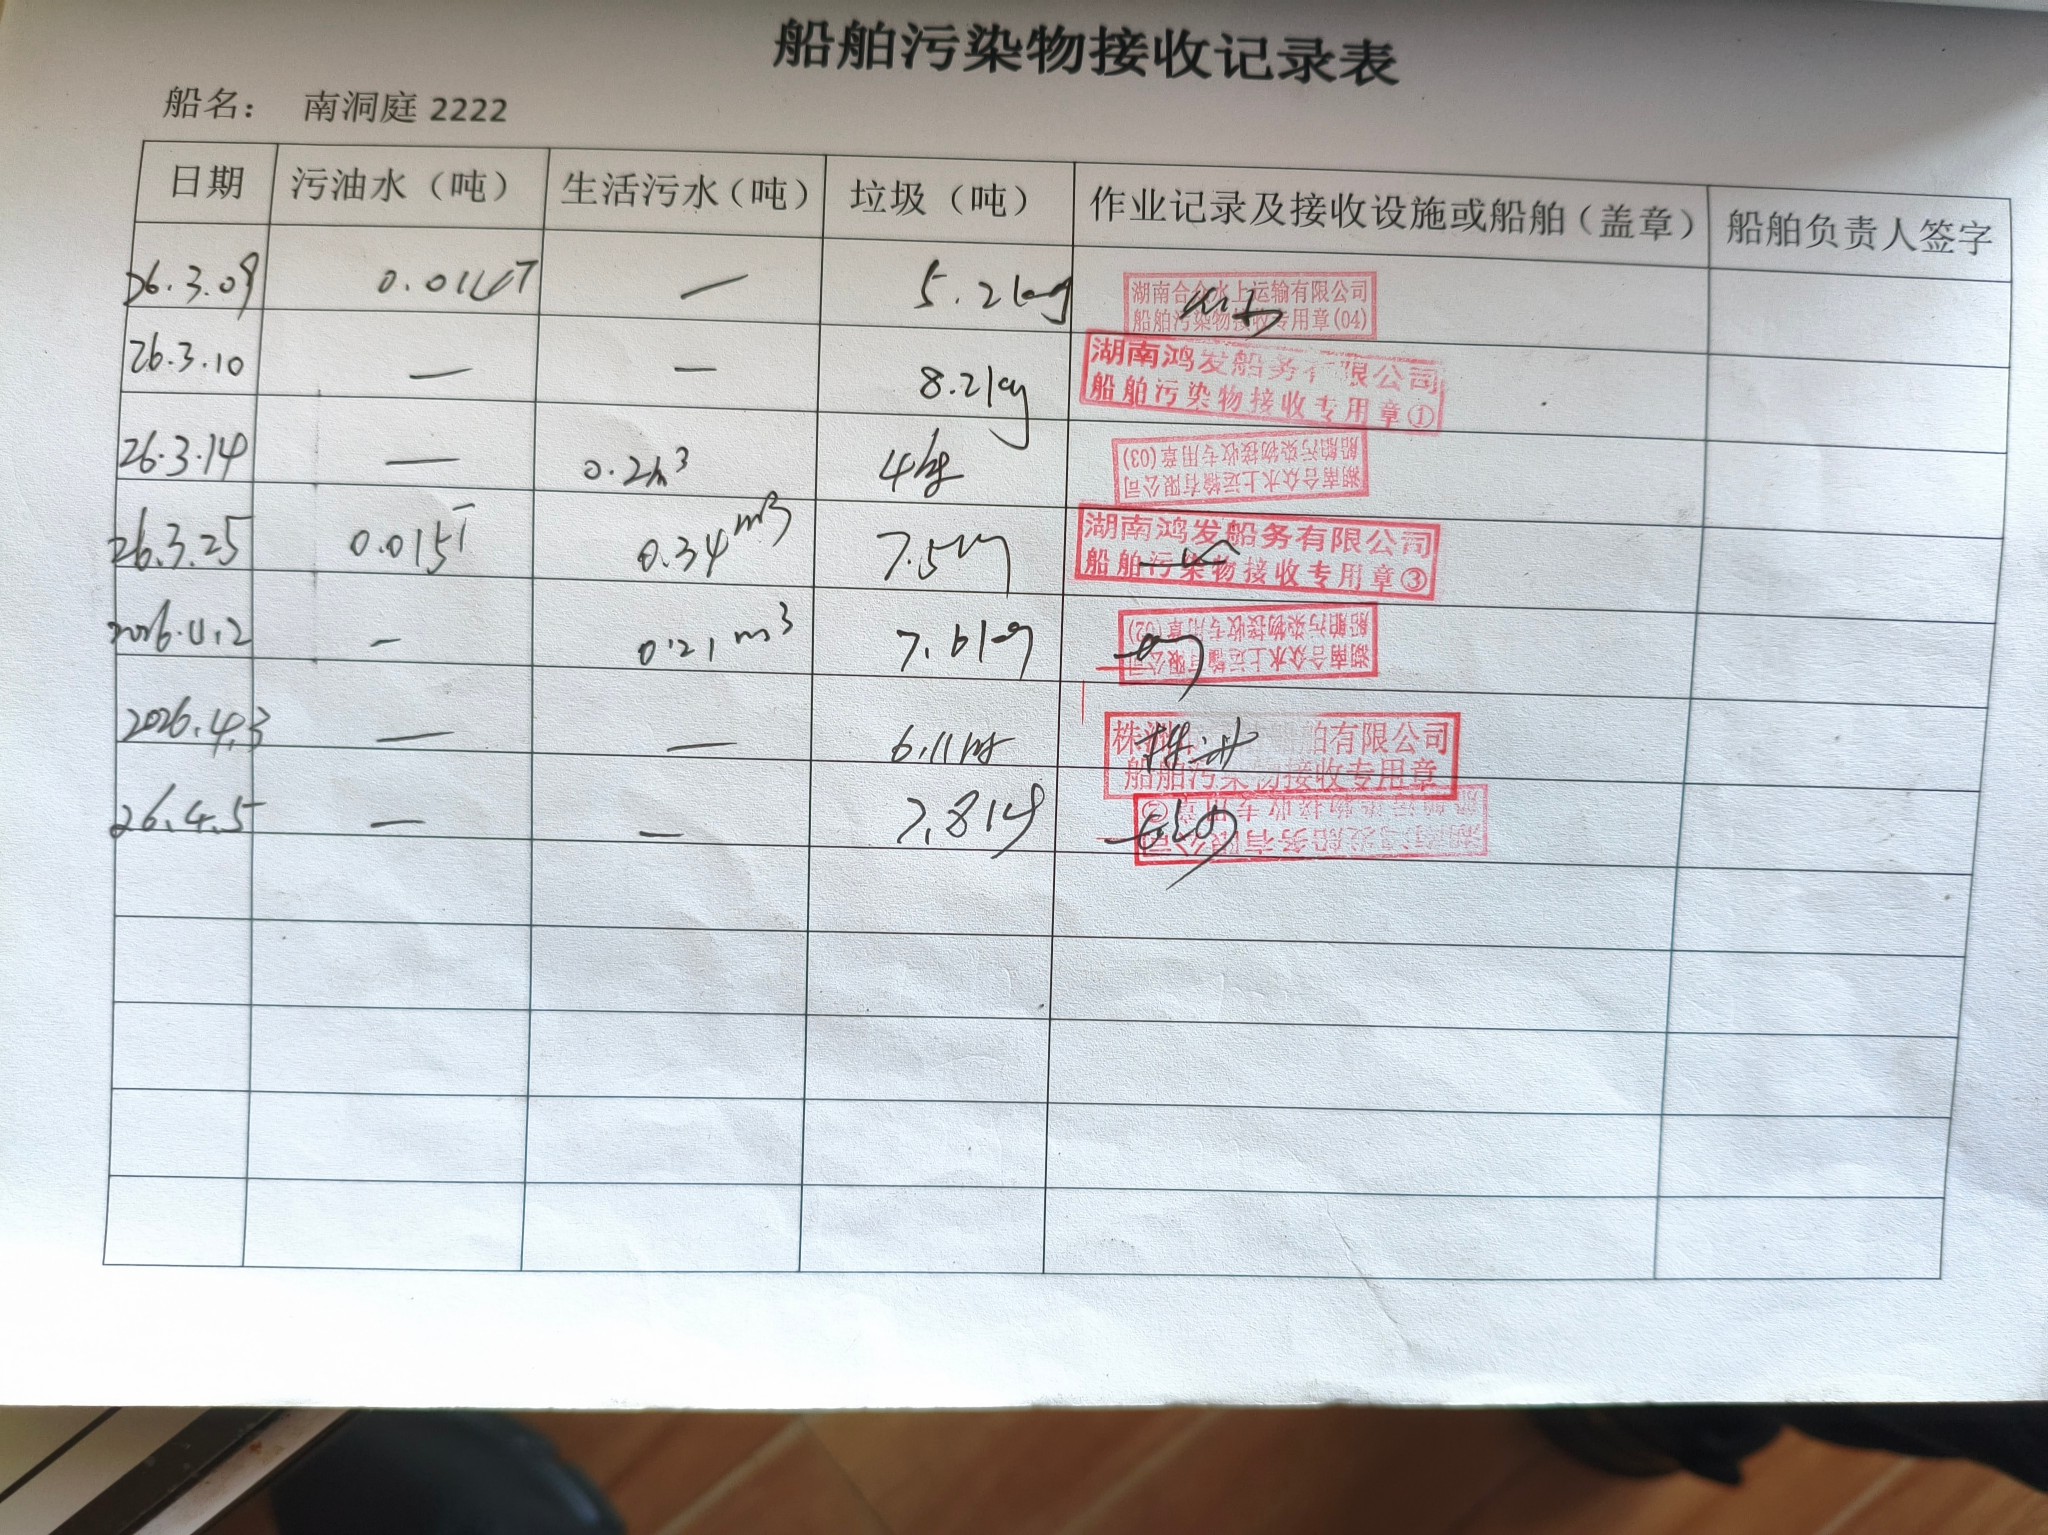 船舶污染物接收记录表
船名： 南洞庭 2222
日期 污油水（吨） 生活污水（吨） 垃圾（吨） 作业记录及接收设施或船舶（盖章） 船舶负责人签字
26.3.09 — 5.2kg
湖南合众水上运输有限公司
船舶污染物接收专用章(04)
26.3.10 — — 8.2kg
湖南鸿发船务有限公司
船舶污染物接收专用章①
26.3.14 — 0.2m³ 4kg
船舶污染物接收专用章(03)
湖南合众水上运输有限公司
26.3.25 0.015T 0.34m³ 7.5kg
湖南鸿发船务有限公司
船舶污染物接收专用章③
2026.4.2 — 0.21m³ 7.6kg
船舶污染物接收专用章(02)
湖南合众水上运输有限公司
2026.4.3 — — 6.11kg
株洲 船舶有限公司
船舶污染物接收专用章
26.4.5 — — 7.81kg
船舶污染物接收专用章②
湖南鸿发船务有限公司